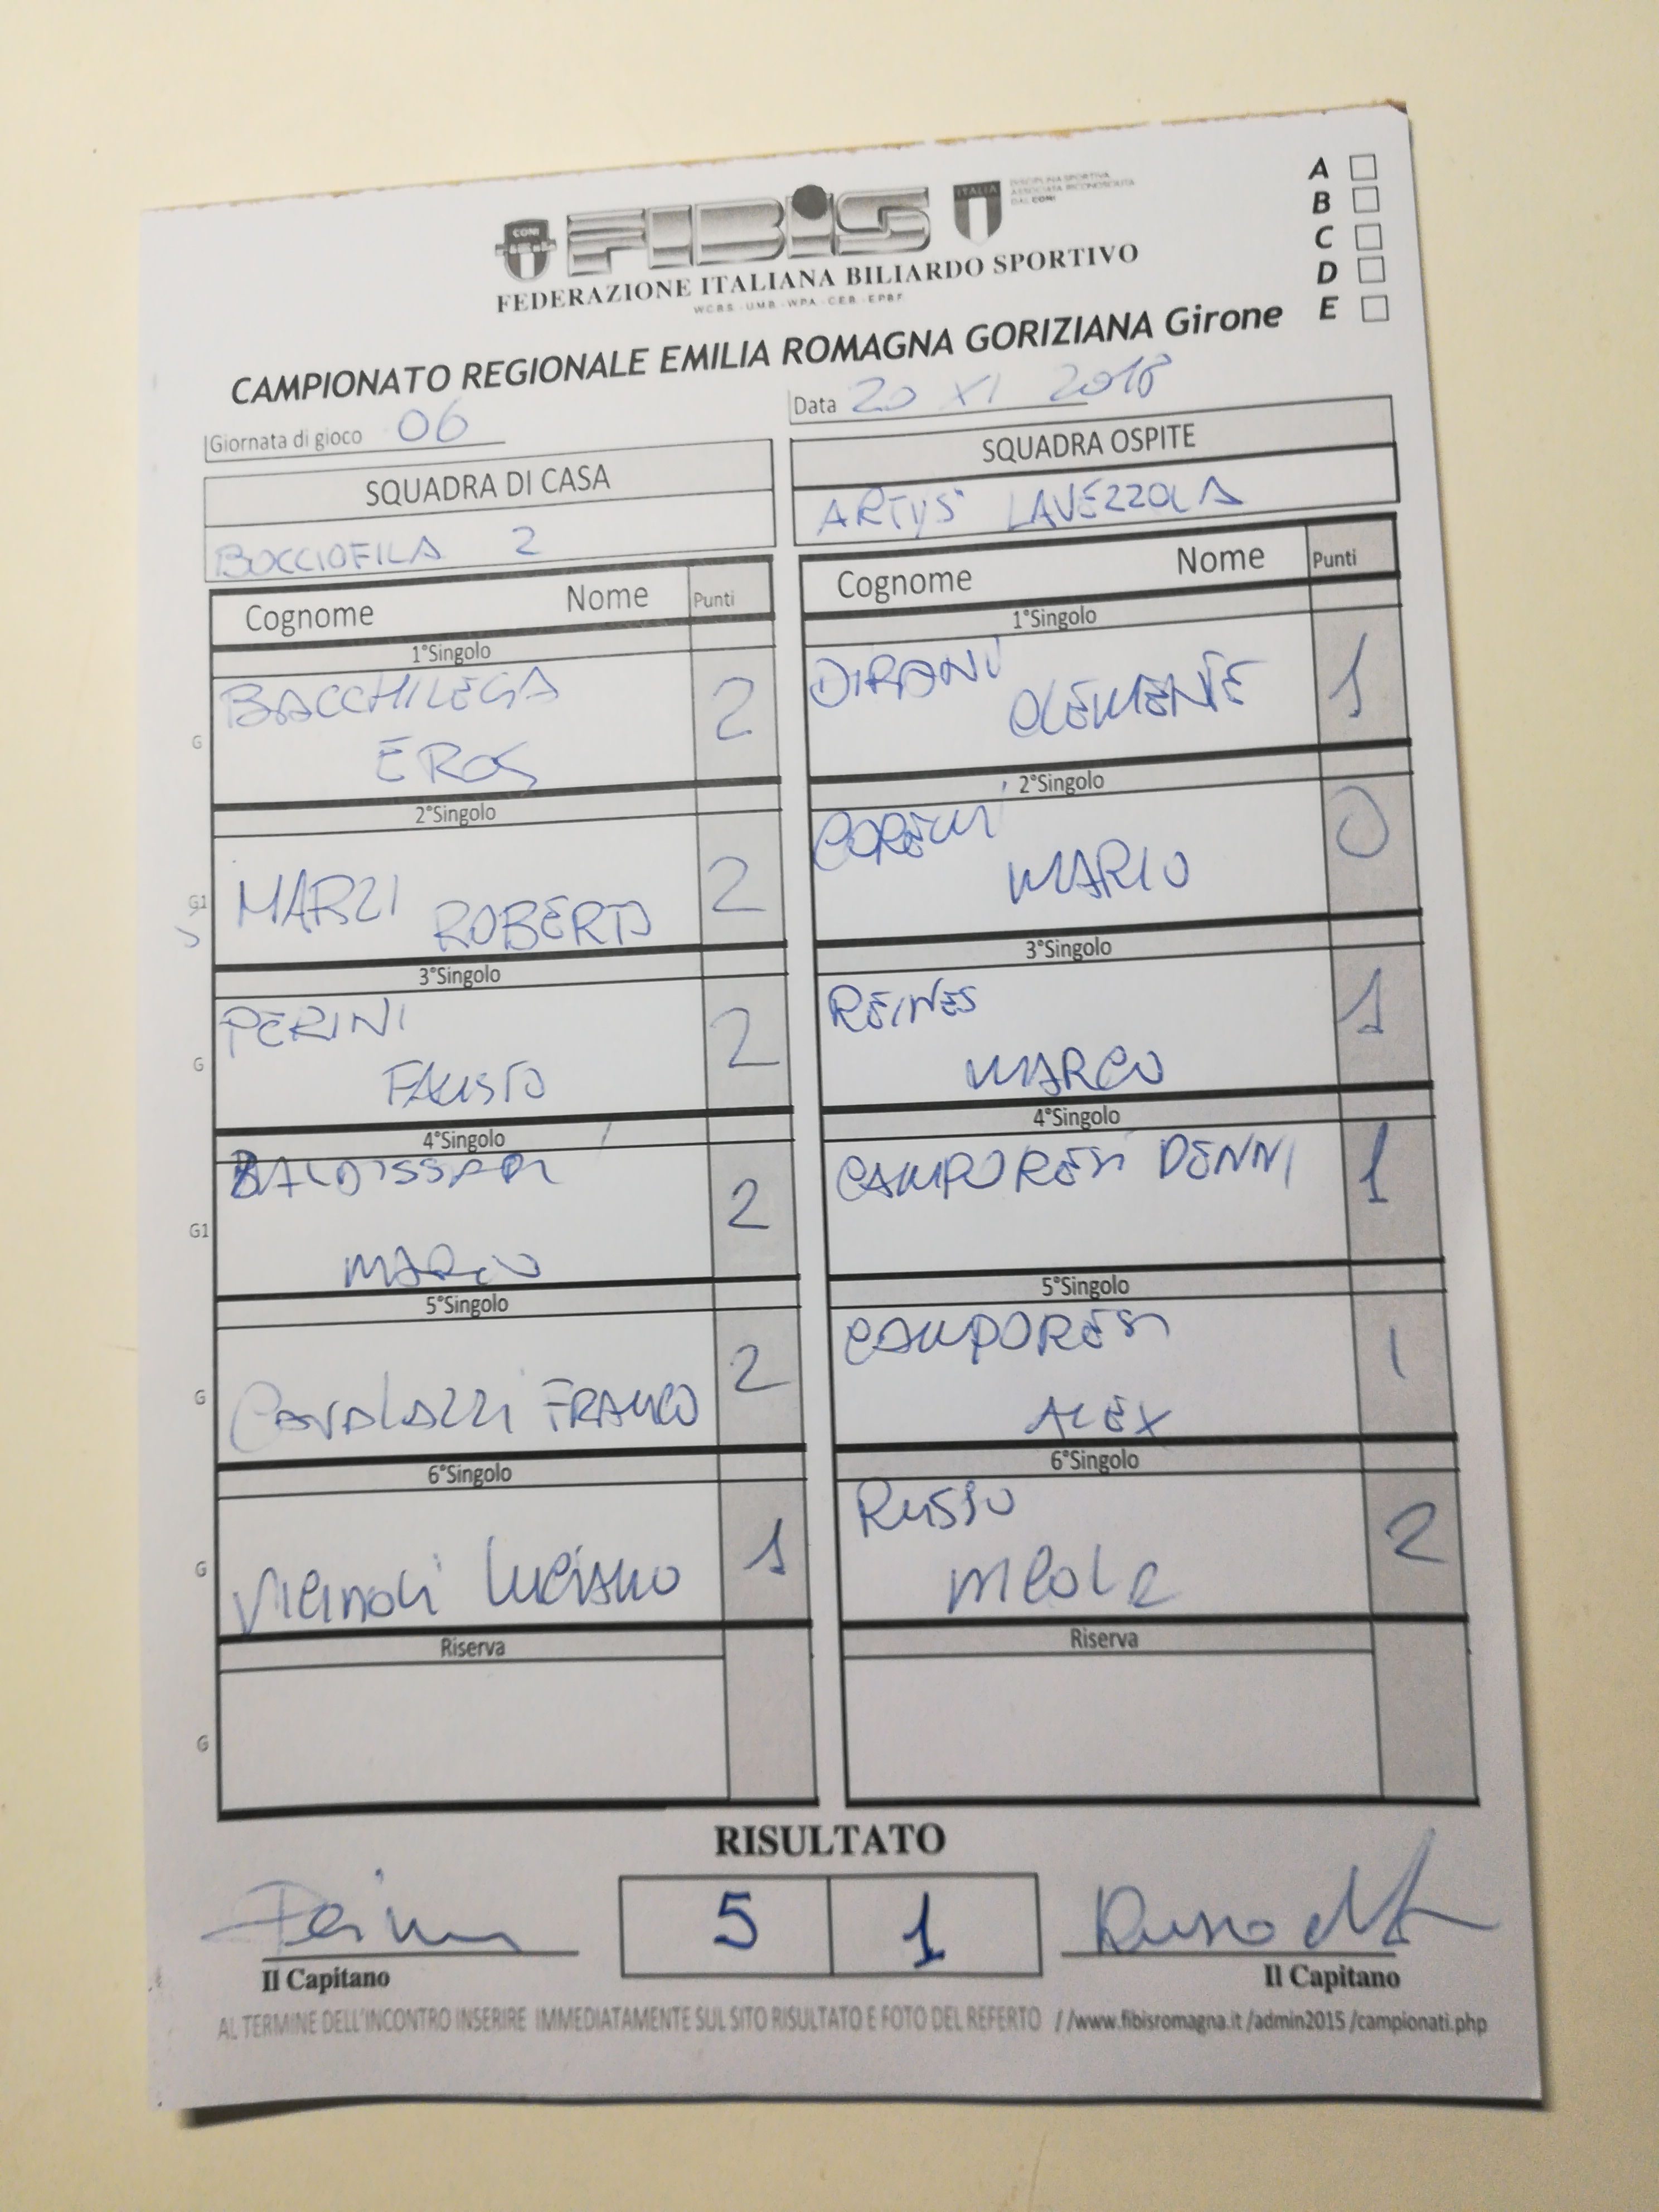 CONI
FIBiS
ITALIA
DISCIPLINA SPORTIVA
ASSOCIATA RICONOSCIUTA
DAL CONI
FEDERAZIONE ITALIANA BILIARDO SPORTIVO
W.C.B.S. - U.M.B. - W.P.A. - C.E.B. - E.P.B.F.
A
B
C
D
E
CAMPIONATO REGIONALE EMILIA ROMAGNA GORIZIANA Girone
Giornata di gioco 06
Data 20 XI 2018
SQUADRA DI CASA
BOCCIOFILA 2
SQUADRA OSPITE
ARTYS' LAVEZZOLA
Cognome Nome Punti
1°Singolo
G
BACCHILEGA
EROS
2
2°Singolo
G1
MARZI ROBERTO
2
3°Singolo
G
PERINI
FAUSTO
2
4°Singolo
G1
BALDISSARI
MARCO
2
5°Singolo
G
CAVALAZZI FRANCO
2
6°Singolo
G
LUCIANO
1
Riserva
G
Cognome Nome Punti
1°Singolo
DIRANI
CLEMENTE
1
2°Singolo
MARIO
0
3°Singolo
REINES
MARCO
1
4°Singolo
CAMPORESI DENNI
1
5°Singolo
CAMPORESI
ALEX
1
6°Singolo
RUSSO
2
Riserva
RISULTATO
5 1
Il Capitano
Russo
Il Capitano
AL TERMINE DELL'INCONTRO INSERIRE IMMEDIATAMENTE SUL SITO RISULTATO E FOTO DEL REFERTO //www.fibisromagna.it /admin2015 /campionati.php